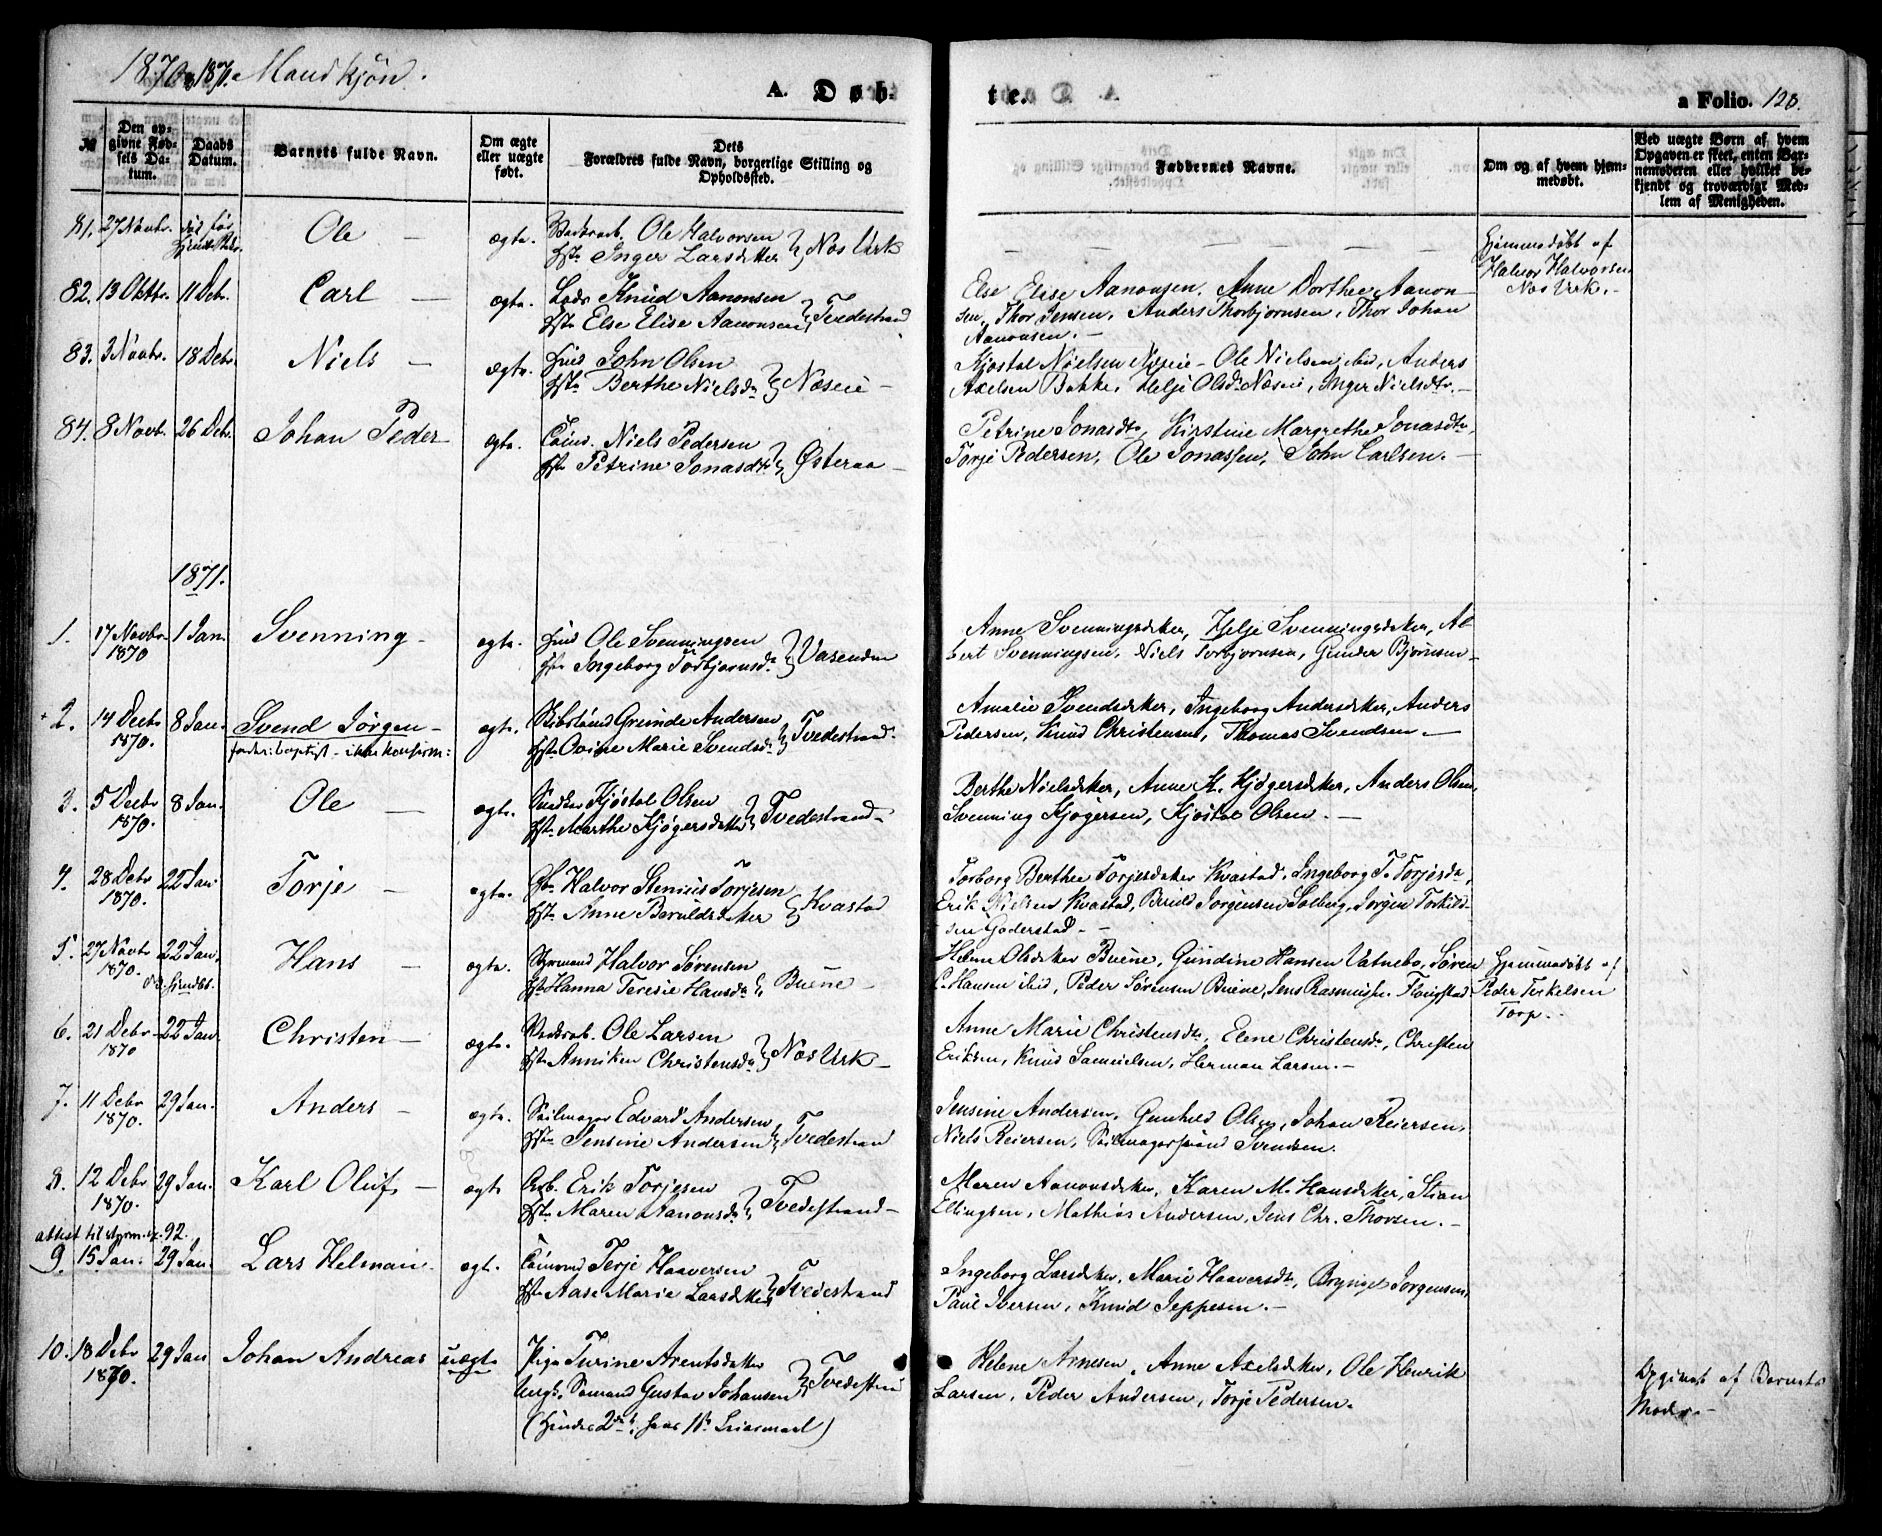 1870 & 1871. Mandkjøn.
A. Døb-
te.
a Folio. 128.
№
Den op-
givne Fød-
sels Da-
tum.
Daabs
Datum.
Barnets fulde Navn.
Om ægte
eller uægte
født.
Dets
Forældres fulde Navn, borgerlige Stilling og
Opholdssted.
Faddernes Navne.
Om og af hvem hjem-
medøbt.
Ved uægte Børn af hvem
Opgaven er skeet, enten Bar-
nemoderen eller hvilket be-
kjendt og troværdigt Med-
lem af Menigheden.
81. 27 Novbr. Ole ægte. Ole Halvorsen
Inger Larsdatter } Næs Værk
Hjemmedøbt af
Halvor Halvorsen
Næs Værk.
82. 13 Oktbr. 11 Debr. Carl ægte. Knud Aanonsen
Hst. Else Elise Aanonsen } Tvedestrand
Else Elise Aanonsen, Anne Dorthee Aanon-
sen, Thor Jensen, Anders Thorbjørnsen, Thor Johan
Aanonsen.
83. 3 Novbr. 18 Debr. Niels ægte. John Olsen
Hst. Berthe Nielsdr } Næseie
Kjøstol Nielsen Næseie, Ole Nielsen ibid, Anders
Axelsen Bakke, Helje Olsdr Næseie, Inger Nielsdtr.
84. 8 Novb. 26 Debr. Johan Peder ægte. Niels Pedersen
Hst. Petrine Jonasdtr } Østeraa
Petrine Jonasdtr, Kirstine Margrethe Jonasdtr,
Torje Pedersen, Ole Jonassen, John Carlsen.
1871.
1. 17 Novbr 1870 1 Jan. Svenning ægte. Ole Svenningsen
Hst. Ingeborg Torbjørnsdr } Vasenden
Anne Svenningsdatter, Helje Svenningsdatter, Al-
bert Svenningsen, Niels Torbjørnsen, Gunder Bjørnsen
2. 14 Decbr 1870. 8 Jan. Svend Jørgen ægte. Grunde Andersen
Hst. Ovine Marie Svendsdr } Tvedestrand.
fader: baptist - ikke konfirm:
Amalie Svendsdatter, Ingeborg Andersdatter, Anders
Pedersen, Knud Christensen, Thomas Svendsen
3. 5 Decbr 1870. 8 Jan. Ole ægte. Snedker Kjøstol Olsen
Hst. Marthe Kjøgersdatter } Tvedestrand
Berthe Nielsdatter, Anne K. Kjøgersdatter, Anders Olsen,
Svenning Kjøgersen, Kjøstol Olsen.
4. 28 Debr 1870. 22 Jan. Torje ægte. Gb. Halvor Stenius Torjesen
Hst. Anne Beruldsdatter } Kvastad
Torborg Berthee Torjesdatter Kvastad, Ingeborg T. Torjesdr,
Erik Nielsen Kvastad, Beruld Jørgensen Solberg, Jørgen Torkild-
sen Goderstad.
5. 27 Novbr 1870. 22 Jan. Hans ægte. Styrmand Halvor Sørensen
Hst. Hanna Teresie Hansdr } Buene
Helene Olsdatter Buene, Gundine Hansen Vatnebo, Søren
C. Hansen ibid, Peder Sørensen Buene, Jens Rasmussen Flougstad
Hjemmedøbt af
Peder Terkelsen
Torp.
6. 21 Debr 1870 22 Jan Christen ægte. Ole Larsen
Hst. Anniken Christensdr } Næs Værk
Anne Marie Christensdtr, Elene Christensdr, Christen
Eriksen, Knud Samuelsen, Herman Larsen.
7. 11 Debr 1870. 29 Jan. Anders ægte. Seilmager Edvard Andersen
Hst. Jensine Andersen } Tvedestrand
Jensine Andersen, Gunhild Olsen, Johan Reiersen,
Niels Reiersen, Seilmagersvend Svendsen.
8. 12 Debr 1870. 29 Jan. Karl Oluf ægte Arb. Erik Torjesen
Hst. Maren Aanonsdr } Tvedestrand
Maren Aanonsdatter, Karen M. Hansdatter, Stian
Ellingsen, Mathias Andersen, Jens Chr. Thorsen.
attest til styrm.ex. 92.
9. 15 Jan. 29 Jan Lars Helman ægte. Terje Haaversen
Hst. Aase Marie Larsdatter } Tvedestrand
Ingeborg Larsdatter, Marie Haaversdtr, Bryngel Jørgensen,
Paul Iversen, Knud Jeppesen.
10. 18 Debr 1870. 29 Jan Johan Andreas uægte Pige Turine Arentsdatter
Ungk. Sømand Gustav Johansen } Tvedestrand
Helene Arnesen, Anne Axelsdatter, Ole Henrik
Larsen, Peder Andersen, Torje Pedersen.
Opgivet af Barnets
Moder.